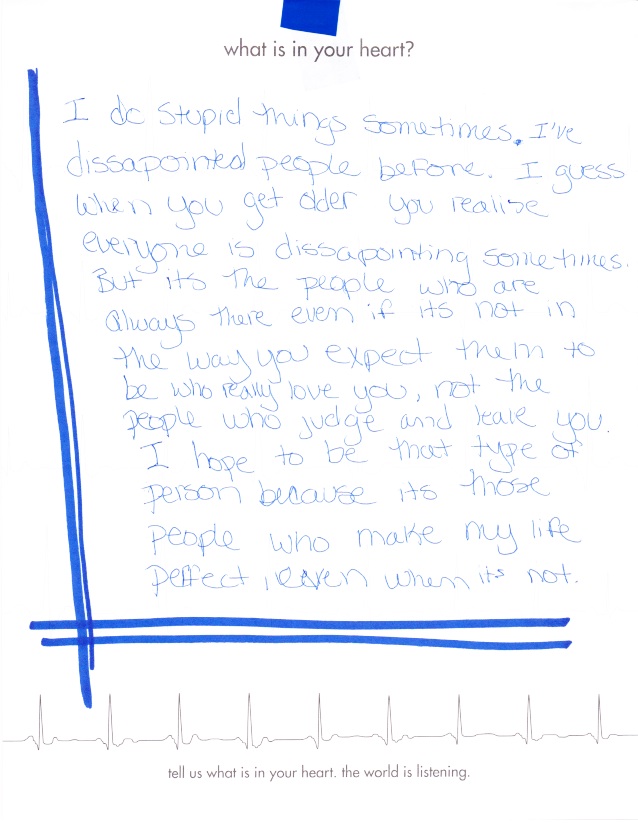 what is in your heart?
I do stupid things sometimes. I've
dissapointed people before. I guess
when you get older you realise
everyone is dissapointing sometimes.
But its the people who are
always there even if its not in
the way you expect them to
be who really love you, not the
people who judge and leave you.
I hope to be that type of
person because its those
people who make my life
perfect, even when its not.
tell us what is in your heart. the world is listening.